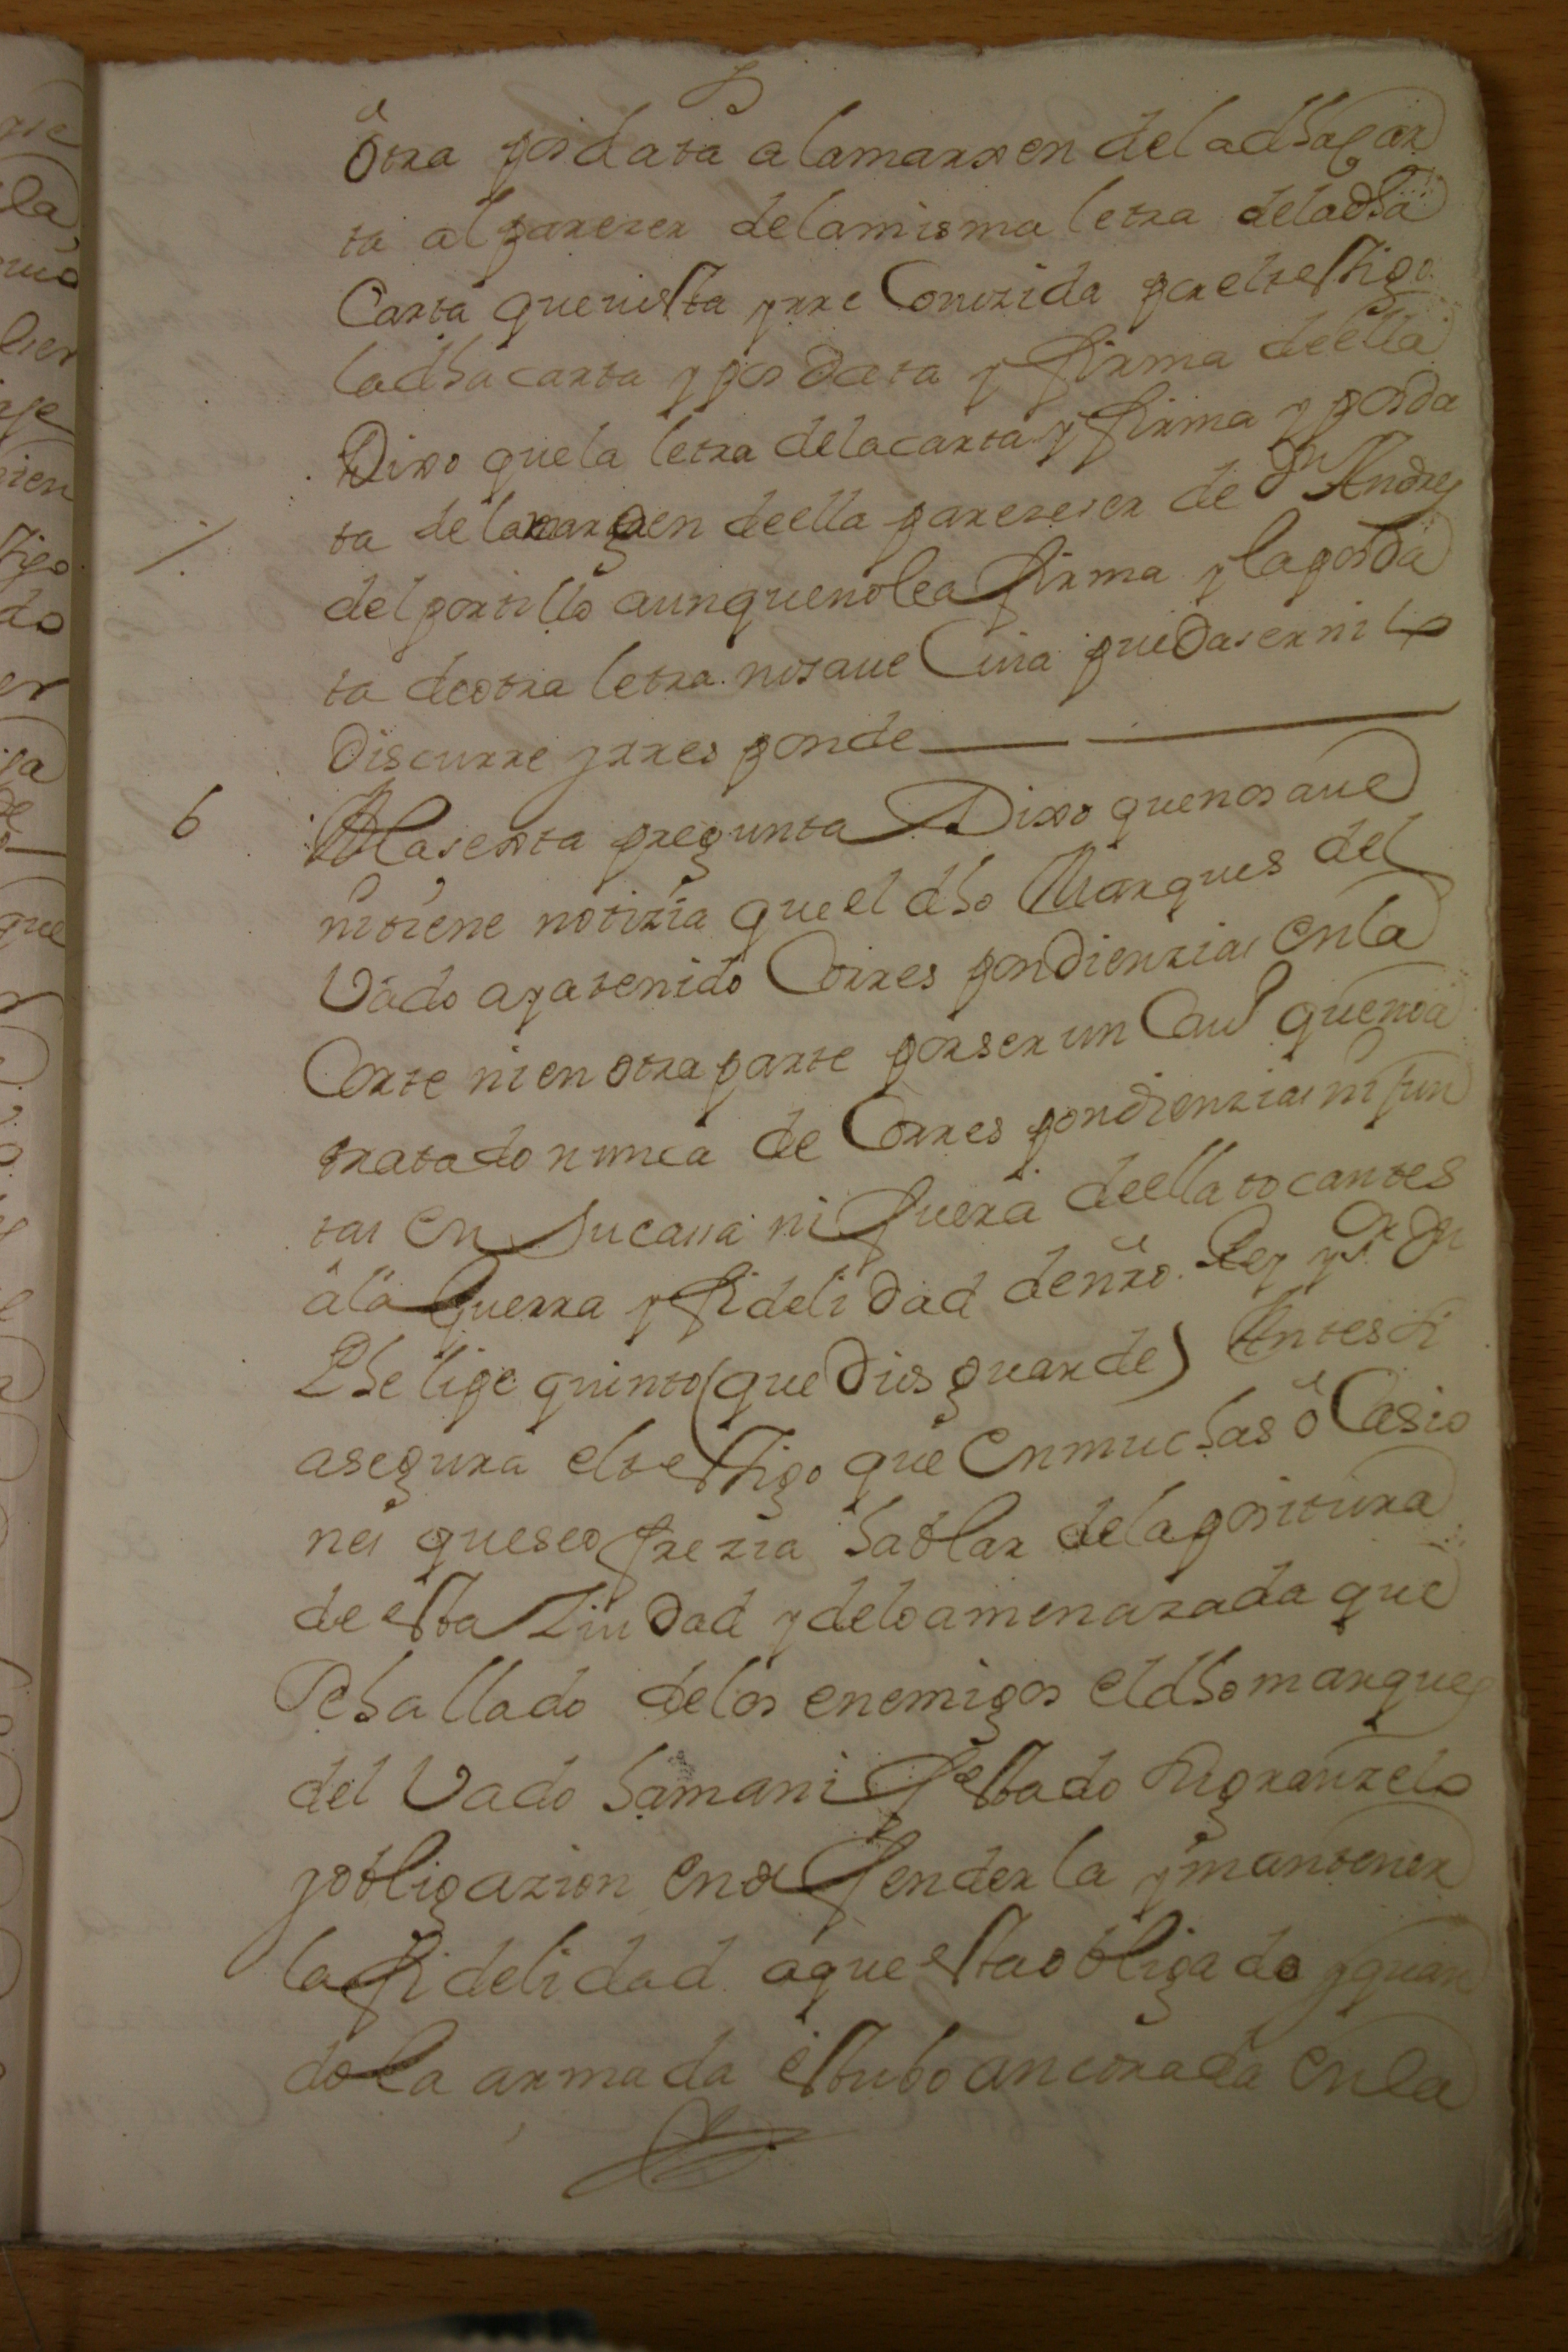 otra posdata a la marxen de la dha Car
ta al pareser de la misma letra de la dha
Carta que uista y rre Conozida por el testigo
la dha carta y posdata y firma de ella
Dixo que la letra de la carta y firma y posda
ta de la margen de ella pareze ser de Dn Andres
del portillo aunque no lea firma y la posda
ta de otra letra no saue Cuia pueda ser ni lo
discurre y rresponde
6
A la sexta pregunta Dixo que no saue
ni tiene notizia que el dho Marques del
Vado aya tenido Corres pondienzias en la
Corte ni en otra parte por ser un Cauo que no a
tratado nunca de Corres pondienzias ni Jun
tas en su casa ni fuera de ella tocantes
a la Guerra y fidelidad de nro Rey y Sr Dn
Phelipe quinto (que Dios guarde) Antes si
asegura el testigo que en muchas o Casio
nes que se o frezia hablar de la positura
de esta Ziudad y de lo amenazada que
se ha llado de los enemigos el dho marques
del Vado ha mani festado su gran zelo
y obligazion en defenderla y mantener
la fidelidad a que esta obligado y quan
do la armada estubo ancorada en la